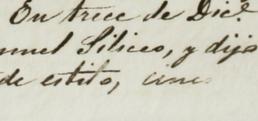 En trece de Dic.e
nuel Siliceo, y dijo
de estilo,